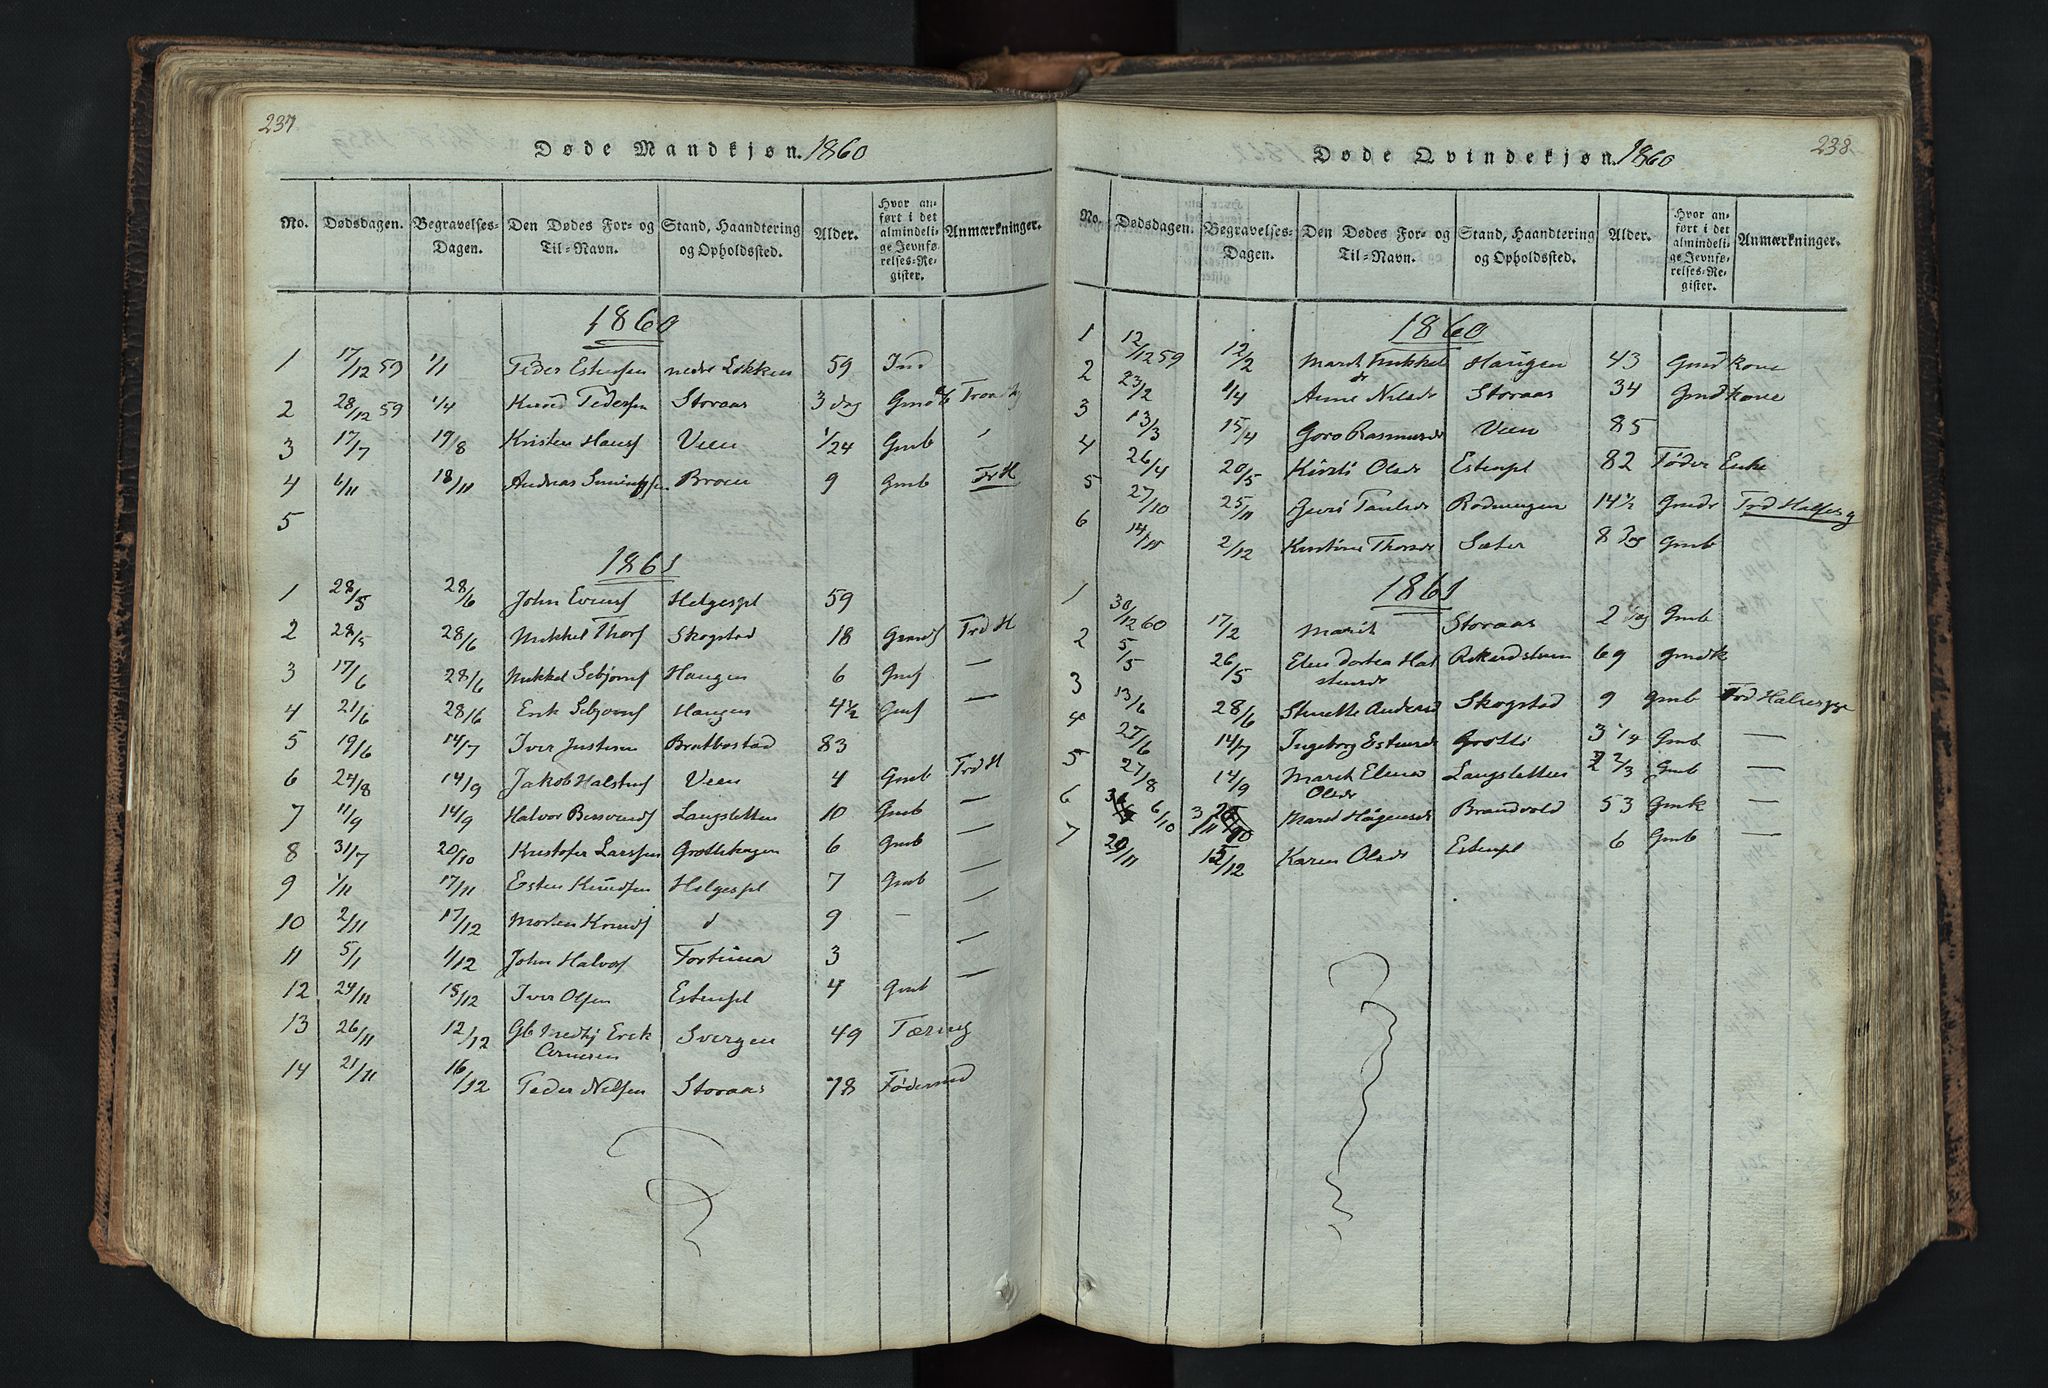 237
Døde Mandkjøn. 1860
No. Dødsdagen. Begravelses-Dagen. Den Dødes For- og Til-Navn. Stand, Haandtering og Opholdssted. Alder. Hvor anført i det almindelige Jevnførelses-Register. Anmærkninger.
1860
1 17/12 59 1/1 Peder Estensen nedre Løkken 59 Ind
2 28/12 59 1/4 Knud Pedersen Storaas 3 dag
3 17/7 19/8 Kristen Hansf Veen 1/24 Gmb
4 6/11 18/11 Andreas Broen 9 Gmb Tr H
5
1861
1 28/5 28/6 John Evensf Helgespl 59
2 28/5 28/6 Mikkel Thorsf Skogstad 18 Trd H
3 17/6 28/6 Mikkel Sebjørnsf Haugen 6 Gmf —
4 21/6 28/6 Erik Sebjørnsf Haugen 4 1/2 Gmf —
5 19/6 14/7 Iver Justesen Bratbostad 83
6 24/8 14/9 Jakob Halstensf Veen 4 Gmb Trd H
7 11/9 14/9 Halvor Langsletten 10 Gmb —
8 31/7 20/10 Kristofer Larssen Grøtlihaugen 6 Gmb —
9 1/11 17/11 Esten Knudsen Helgespl 7 Gmb —
10 2/11 17/12 Morten Knudsf d 9 — —
11 5/1 1/12 John Halvorsf Fortuna 3 —
12 24/11 15/12 Iver Olsen Estenspl 4 Gmb —
13 26/11 12/12 Erik Svergen 49 Tæring
14 21/11 16/12 Peder Nilsen Storaas 78 Føderaad
238
Døde Qvindekjøn. 1860
No. Dødsdagen. Begravelses-Dagen. Den Dødes For- og Til-Navn. Stand, Haandtering og Opholdssted. Alder. Hvor anført i det almindelige Jevnførelses-Register. Anmærkninger.
1860
1 12/12 59 12/2 Marit Mikkelsdr Haugen 43 Gmd kone
2 23/2 1/4 Anne Nilsdr Storaas 34 Gmd kone
3 13/3 15/4 Goro Rasmusdr Veen 85
4 26/4 20/5 Kirsti Olsdr Estenspl 82 Føder Enke
5 27/10 25/11 Guri Paulsdr Rødningen 14 1/2 Gmdr
6 14/11 2/12 Kristine Thorsdr Sæter 8 Dag Gmb
1861
1 30/12 60 17/2 Marit Storaas 2 Dag Gmb
2 5/5 26/5 Elen Dortea Hal
stensdr 69 Gmdk
3 13/6 28/6 Andersd Skogstad 9 Gmb
4 27/6 14/7 Ingeborg Estensdr Grøtli 3 1/4 Gmb —
5 27/8 14/9 Marit Elena
Olsdr Langsletten 2 2/3 Gmb —
6 6/10 3/11 Marit Haagensdr Brandvold 53 Gmk —
7 20/11 15/12 Karen Olsdr Estenspl 6 Gmb —